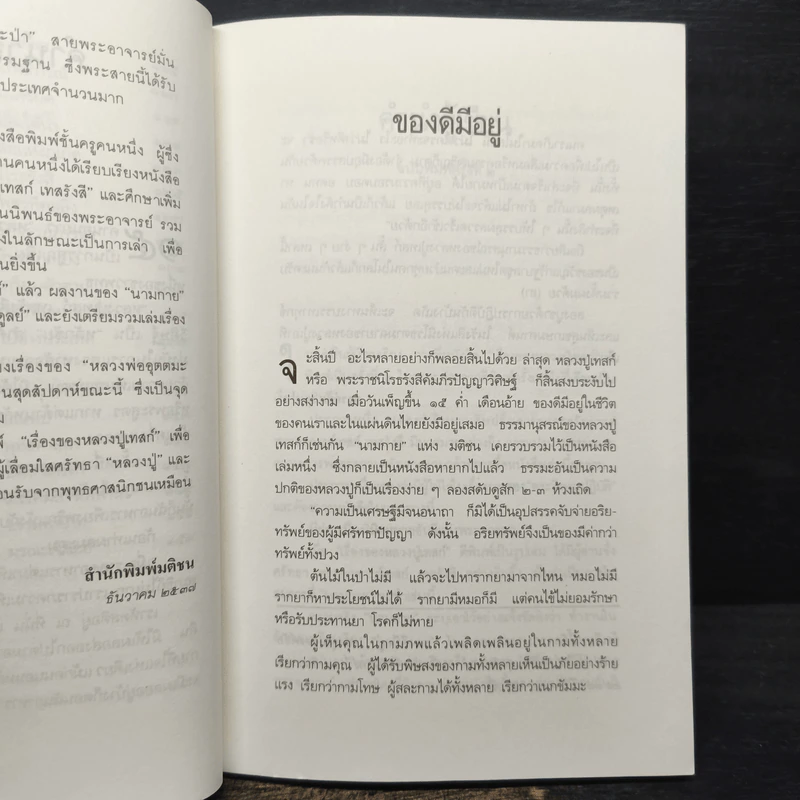 ะป่า" สายพระอาจารย์มั่น
รมฐาน ซึ่งพระสายนี้ได้รับ
ประเทศจำนวนมาก
งสือพิมพ์ชั้นครูคนหนึ่ง ผู้ซึ่ง
านคนหนึ่งได้เรียบเรียงหนังสือ
เทสก์ เทสรังสี" และศึกษาเพิ่ม
นนิพนธ์ของพระอาจารย์ รวม
งในลักษณะเป็นการเล่า เพื่อ
นยิ่งขึ้น
แล้ว ผลงานของ "นามกาย"
ดูลย์" และยังเตรียมรวมเล่มเรื่อง
ยงเรื่องของ "หลวงพ่ออุตตมะ
นสุดสัปดาห์ขณะนี้ ซึ่งเป็นจุด
"เรื่องของหลวงปู่เทสก์" เพื่อ
ผู้เลื่อมใสศรัทธา "หลวงปู่" และ
อนรับจากพุทธศาสนิกชนเหมือน
สำนักพิมพ์มติชน
ธันวาคม ๒๕๓๗
ของดีมีอยู่
จะสิ้นปี อะไรหลายอย่างก็พลอยสิ้นไปด้วย ล่าสุด หลวงปู่เทสก์
หรือ พระราชนิโรธรังสีคัมภีรปัญญาวิศิษฐ์ ก็สิ้นสงบระงับไป
อย่างสง่างาม เมื่อวันเพ็ญขึ้น ๑๕ ค่ำ เดือนอ้าย ของดีมีอยู่ในชีวิต
ของคนเราและในแผ่นดินไทยยังมีอยู่เสมอ ธรรมานุสรณ์ของหลวงปู่
เทสก์ก็เช่นกัน "นามกาย" แห่ง มติชน เคยรวบรวมไว้เป็นหนังสือ
เล่มหนึ่ง ซึ่งกลายเป็นหนังสือหายากไปแล้ว ธรรมะอันเป็นความ
ปกติของหลวงปู่ก็เป็นเรื่องง่าย ๆ ลองสดับดูสัก ๒-๓ ห้วงเถิด
"ความเป็นเศรษฐีมีจนอนาถา ก็มิได้เป็นอุปสรรคจับจ่ายอริย-
ทรัพย์ของผู้มีศรัทธาปัญญา ดังนั้น อริยทรัพย์จึงเป็นของมีค่ากว่า
ทรัพย์ทั้งปวง
ต้นไม้ในป่าไม่มี แล้วจะไปหารากยามาจากไหน หมอไม่มี
รากยาก็หาประโยชน์ไม่ได้ รากยามีหมอก็มี แต่คนไข้ไม่ยอมรักษา
หรือรับประทานยา โรคก็ไม่หาย
ผู้เห็นคุณในกามภพแล้วเพลิดเพลินอยู่ในกามทั้งหลาย
เรียกว่ากามคุณ ผู้ได้รับพิษสงของกามทั้งหลายเห็นเป็นภัยอย่างร้าย
แรง เรียกว่ากามโทษ ผู้สละกามได้ทั้งหลาย เรียกว่าเนกขัมมะ